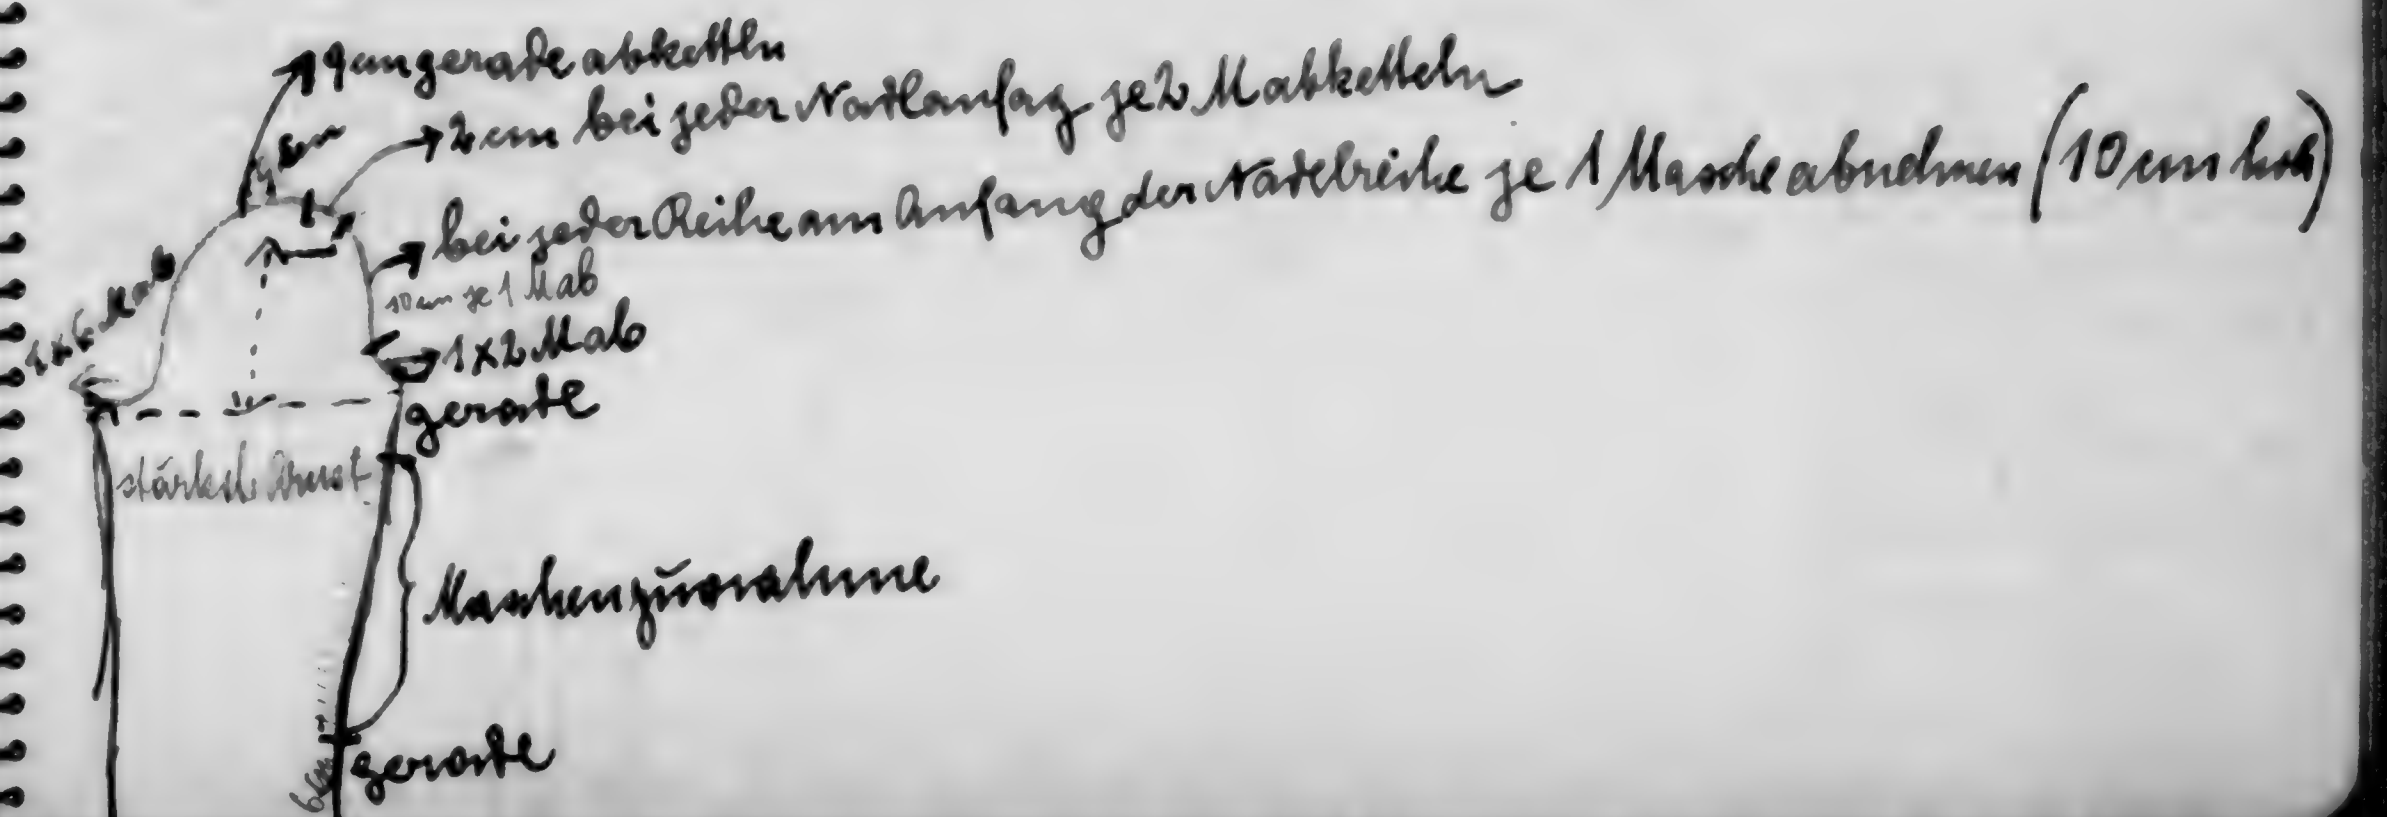 9 cm gerade abketteln
2 cm bei jeder Nadlanfag je 2 M abketteln
bei jeder Reihe am Anfang der Nadelreihe je 1 Masche abnehmen (10 cm hoch)
10 cm je 1 M ab
1 x 6 M ab
1 x 2 M ab
gerade
Maschenzunahme
6 cm
gerade